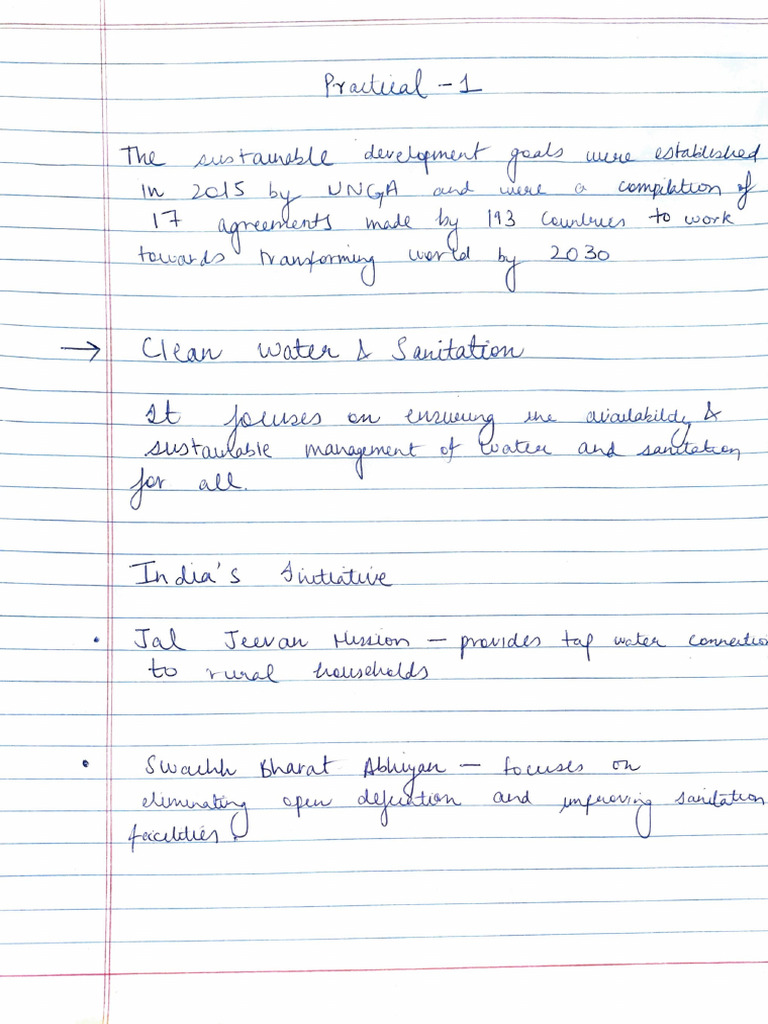 Practical - 1
The sustainable development goals were established
in 2015 by UNGA and were a compilation of
17 agreements made by 193 countries to work
towards transforming world by 2030
→ Clean Water & Sanitation
It focuses on ensuring the availability &
sustainable management of water and sanitation
for all.
India's Initiative
• Jal Jeevan Mission — provides tap water connection
to rural households
• Swachh Bharat Abhiyan — focuses on
eliminating open defecation and improving sanitation
facilities.